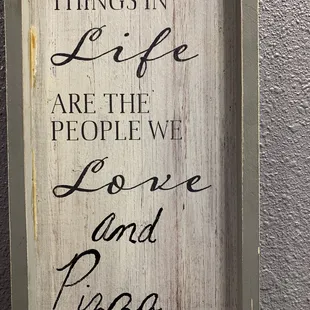 THINGS IN
Life
ARE THE
PEOPLE WE
Love
and
Pizza